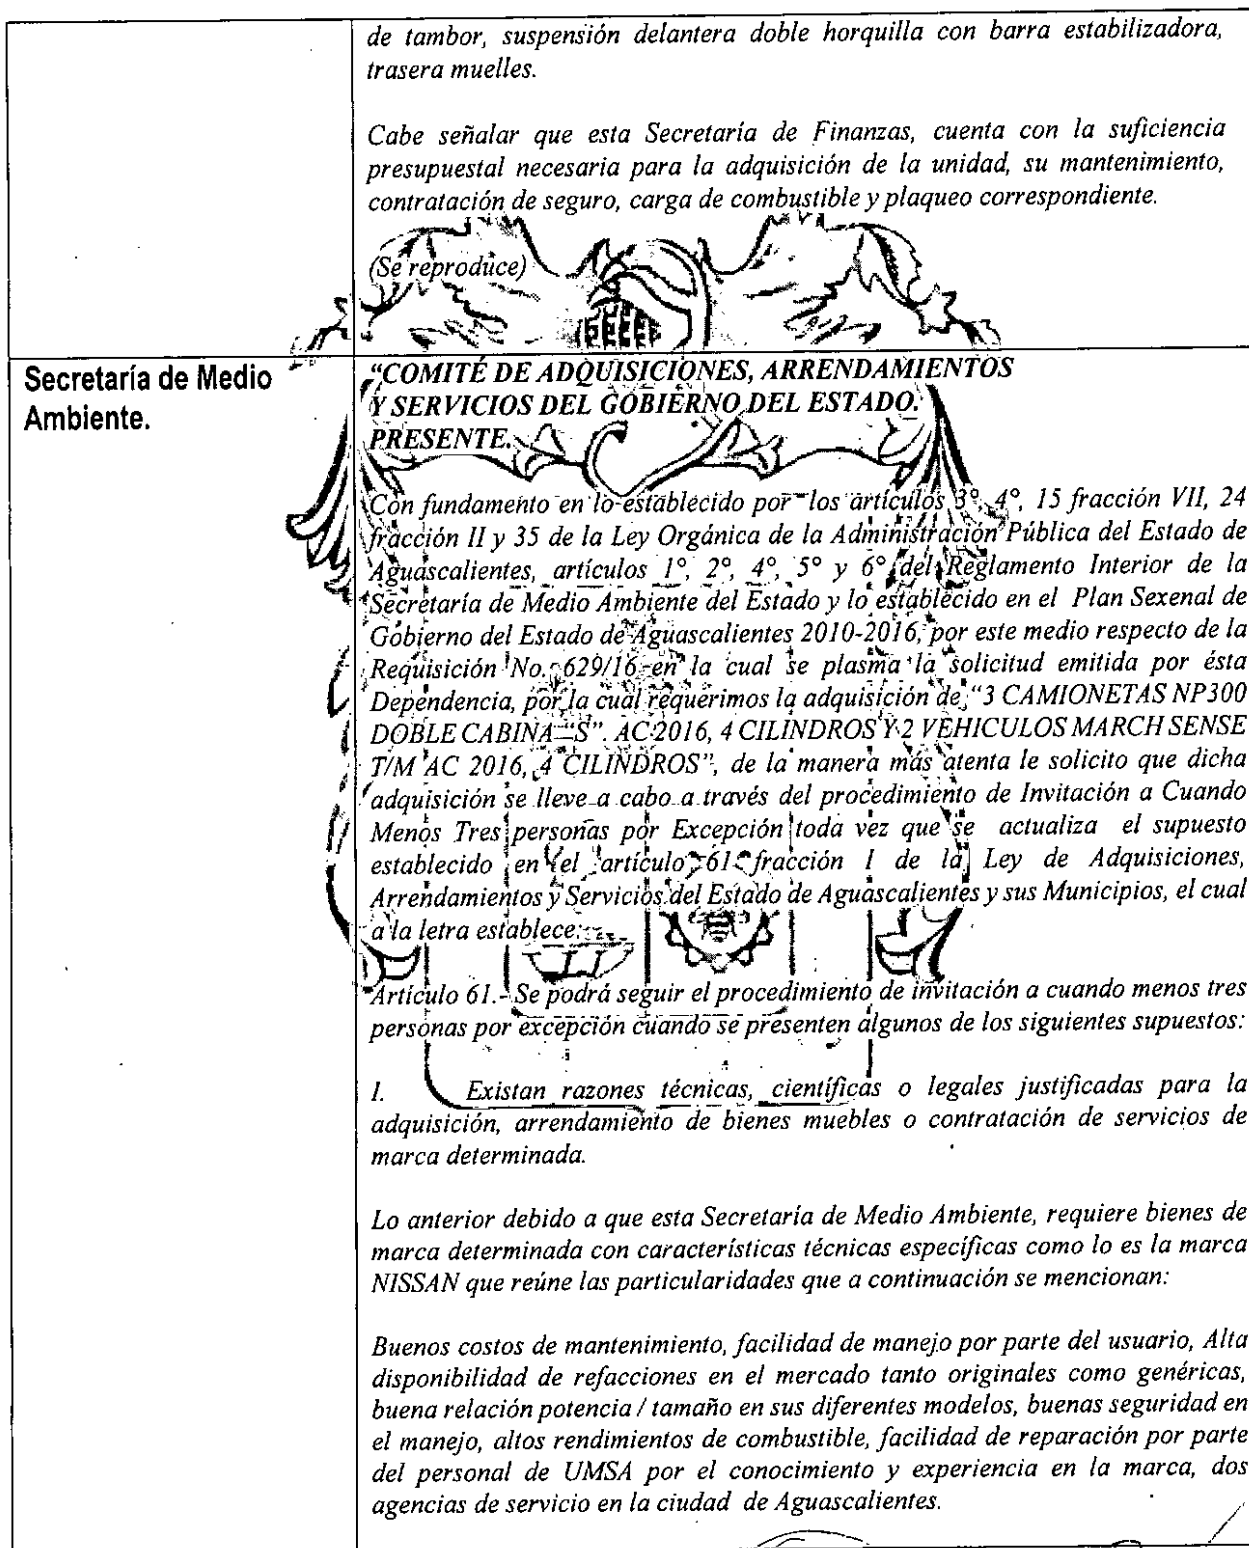 de tambor, suspensión delantera doble horquilla con barra estabilizadora,
trasera muelles.
Cabe señalar que esta Secretaría de Finanzas, cuenta con la suficiencia
presupuestal necesaria para la adquisición de la unidad, su mantenimiento,
contratación de seguro, carga de combustible y plaqueo correspondiente.
(Se reproduce)
Secretaría de Medio
Ambiente.
“COMITÉ DE ADQUISICIONES, ARRENDAMIENTOS
Y SERVICIOS DEL GOBIERNO DEL ESTADO.
PRESENTE.
Con fundamento en lo establecido por los artículos 3°, 4°, 15 fracción VII, 24
fracción II y 35 de la Ley Orgánica de la Administración Pública del Estado de
Aguascalientes, artículos 1°, 2°, 4°, 5° y 6° del Reglamento Interior de la
Secretaría de Medio Ambiente del Estado y lo establecido en el Plan Sexenal de
Gobierno del Estado de Aguascalientes 2010-2016, por este medio respecto de la
Requisición No. 629/16 en la cual se plasma la solicitud emitida por ésta
Dependencia, por la cual requerimos la adquisición de “3 CAMIONETAS NP300
DOBLE CABINA “S”. AC 2016, 4 CILINDROS Y 2 VEHICULOS MARCH SENSE
T/M AC 2016, 4 CILINDROS”, de la manera más atenta le solicito que dicha
adquisición se lleve a cabo a través del procedimiento de Invitación a Cuando
Menos Tres personas por Excepción toda vez que se actualiza el supuesto
establecido en el artículo 61 fracción I de la Ley de Adquisiciones,
Arrendamientos y Servicios del Estado de Aguascalientes y sus Municipios, el cual
a la letra establece:
Artículo 61.- Se podrá seguir el procedimiento de invitación a cuando menos tres
personas por excepción cuando se presenten algunos de los siguientes supuestos:
I. Existan razones técnicas, científicas o legales justificadas para la
adquisición, arrendamiento de bienes muebles o contratación de servicios de
marca determinada.
Lo anterior debido a que esta Secretaría de Medio Ambiente, requiere bienes de
marca determinada con características técnicas específicas como lo es la marca
NISSAN que reúne las particularidades que a continuación se mencionan:
Buenos costos de mantenimiento, facilidad de manejo por parte del usuario, Alta
disponibilidad de refacciones en el mercado tanto originales como genéricas,
buena relación potencia / tamaño en sus diferentes modelos, buenas seguridad en
el manejo, altos rendimientos de combustible, facilidad de reparación por parte
del personal de UMSA por el conocimiento y experiencia en la marca, dos
agencias de servicio en la ciudad de Aguascalientes.